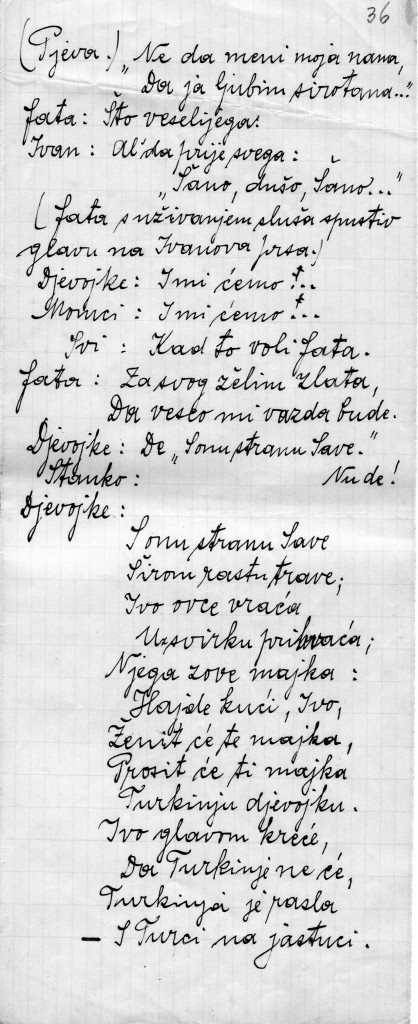 36
(Pjeva.) „Ne da meni moja nana,
Da ja ljubim sirotana..."
Fata: Što veselijega!
Ivan: Al' da prije svega:
„Šano, dušo, Šano..."
(Fata s uživanjem sluša spustiv
glavu na Ivanova prsa.)
Djevojke: I mi ćemo!..
Momci: I mi ćemo!..
Svi: Kad to voli Fata.
Fata: Za svog želim zlata,
Da veseo mi vazda bude.
Djevojke: De „S onu stranu Save."
Stanko: Nu de!
Djevojke:
S onu stranu Save
Širom rastu trave;
Ivo ovce vraća
Uz svirku prihvaća;
Njega zove majka:
Hajde kući, Ivo,
Ženit će te majka,
Prosit će ti majka
Turkinju djevojku.
Ivo glavom kreće,
Da Turkinje ne će,
Turkinja je rasla
– S Turci na jastuci.